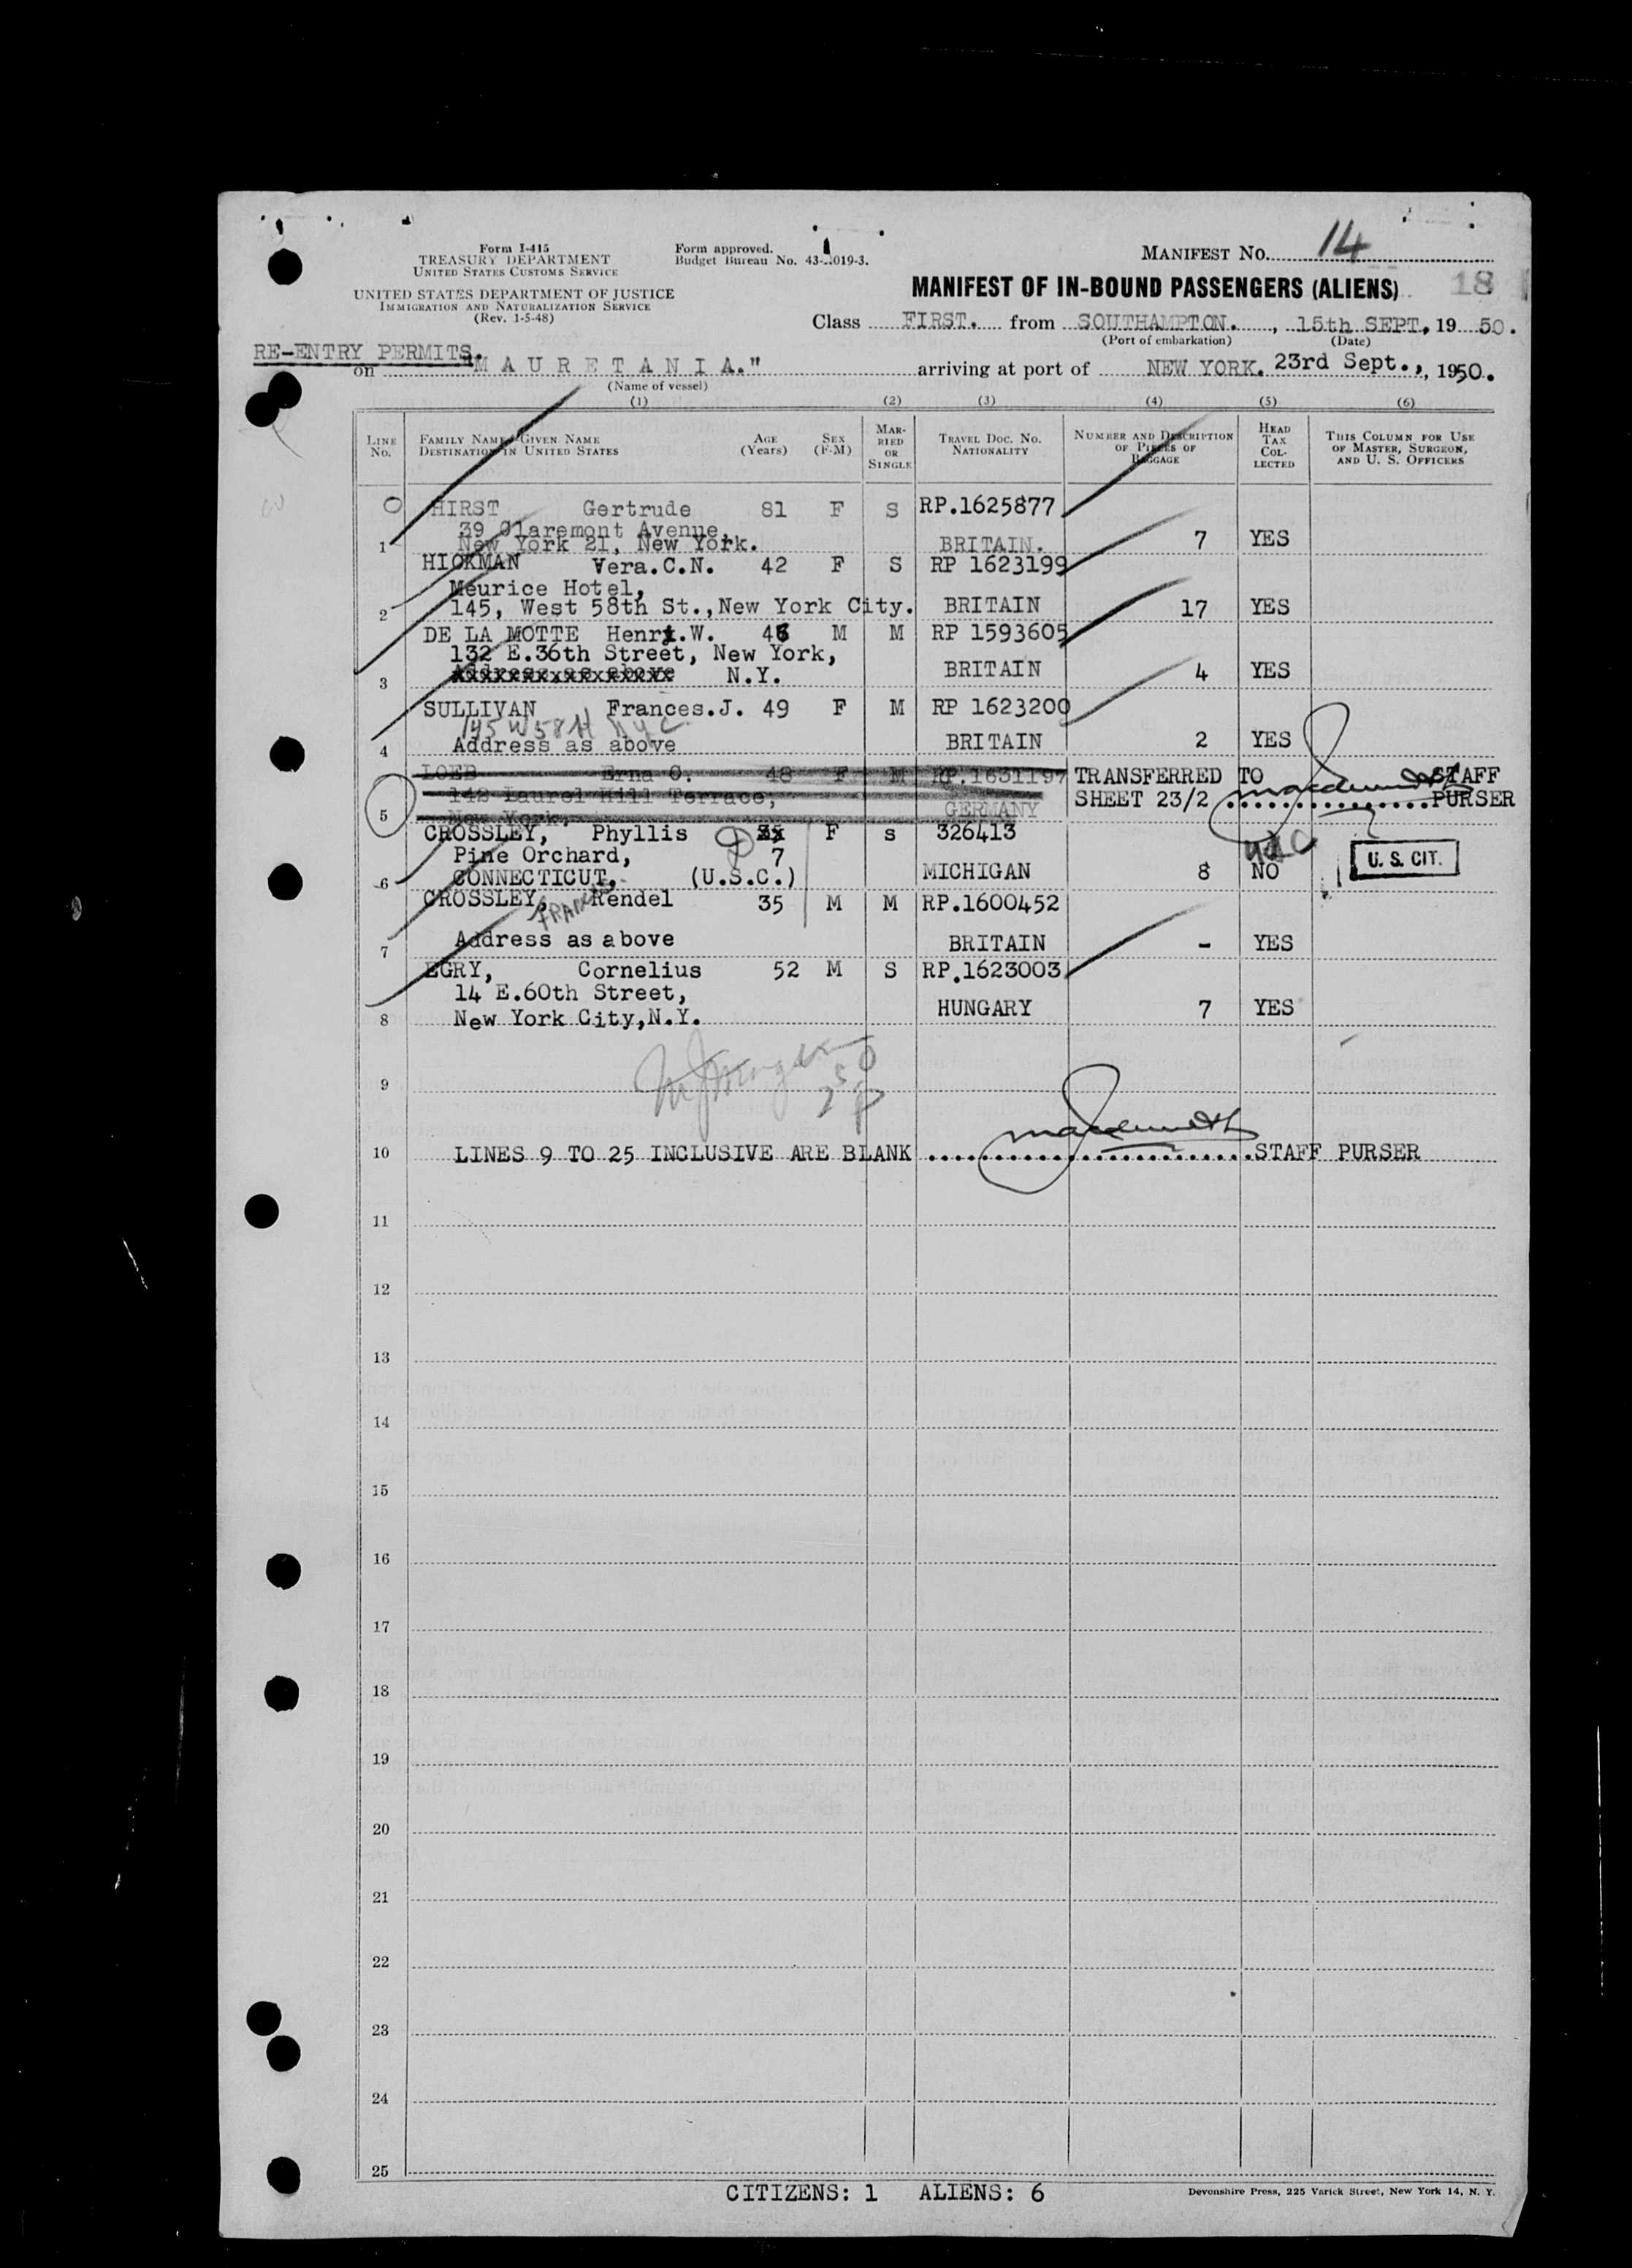 Form I-415
TREASURY DEPARTMENT
UNITED STATES CUSTOMS SERVICE
UNITED STATES DEPARTMENT OF JUSTICE
IMMIGRATION AND NATURALIZATION SERVICE
(Rev. 1-5-48)
Form approved.
Budget Bureau No. 43- 019-3.
MANIFEST NO. 14
MANIFEST OF IN-BOUND PASSENGERS (ALIENS) 18
Class FIRST. from SOUTHAMPTON. , 15th SEPT, 19 50.
(Port of embarkation) (Date)
RE-ENTRY PERMITS.
on "MAURETANIA." arriving at port of NEW YORK. 23rd Sept., 1950.
(Name of vessel)
(1) (2) (3) (4) (5) (6)
LINE NO. FAMILY NAME GIVEN NAME DESTINATION IN UNITED STATES AGE (Years) SEX (F-M) MARRIED OR SINGLE TRAVEL DOC. NO. NATIONALITY NUMBER AND DESCRIPTION OF PIECES OF BAGGAGE HEAD TAX COLLECTED THIS COLUMN FOR USE OF MASTER, SURGEON, AND U. S. OFFICERS
HIRST Gertrude 81 F S RP.1625877
39 Claremont Avenue,
1 New York 21, New York. BRITAIN. 7 YES
HICKMAN Vera.C.N. 42 F S RP 1623199
Meurice Hotel,
2 145, West 58th St.,New York City. BRITAIN 17 YES
DE LA MOTTE Henri.W. M M RP 1593605
132 E.36th Street, New York,
3 Address as above N.Y. BRITAIN 4 YES
SULLIVAN Frances.J. 49 F M RP 1623200
145 W 58th NYC
4 Address as above BRITAIN 2 YES
LOEB Erna O. 48 F M RP.1631197 TRANSFERRED TO STAFF
142 Laurel Hill Terrace, SHEET 23/2 PURSER
5 New York. GERMANY
CROSSLEY, Phyllis 35 F s 326413
Pine Orchard, 7
6 CONNECTICUT, (U.S.C.) MICHIGAN 8 NO U. S. CIT.
CROSSLEY, Rendel 35 M M RP.1600452
7 Address as above BRITAIN - YES
EGRY, Cornelius 52 M S RP.1623003
14 E.60th Street,
8 New York City,N.Y. HUNGARY 7 YES
9
10 LINES 9 TO 25 INCLUSIVE ARE BLANK STAFF PURSER
11
12
13
14
15
16
17
18
19
20
21
22
23
24
25
CITIZENS: 1 ALIENS: 6
Devonshire Press, 225 Varick Street, New York 14, N. Y.